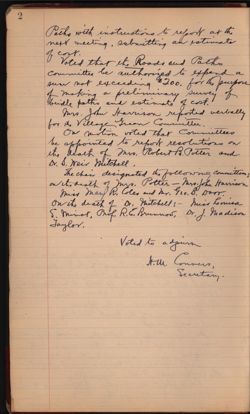 2
Paths with instructions to report at the
next meeting, submitting an estimate
of cost.
Voted that the Roads and Paths
committee be authorized to expend a
sum not exceeding $200. for the purpose
of making a preliminary survey of
bridle paths and estimate of cost.
Mrs. John Harrison reported verbally
for the Village Green Committee.
On motion voted that Committees
be appointed to report resolutions on
the death of Mrs. Robert B. Potter and
Dr. S. Weir Mitchell.
The chair designated the following committees,
on the death of Mrs. Potter - Mrs. John Harrison
Miss Mary R. Coles and Mr. Geo. B. Dorr.
On the death of Dr. Mitchell; - Miss Louisa
S. Minot, Prof. R. E. Dr. J. Madison
Taylor.
Voted to adjourn
Secretary.